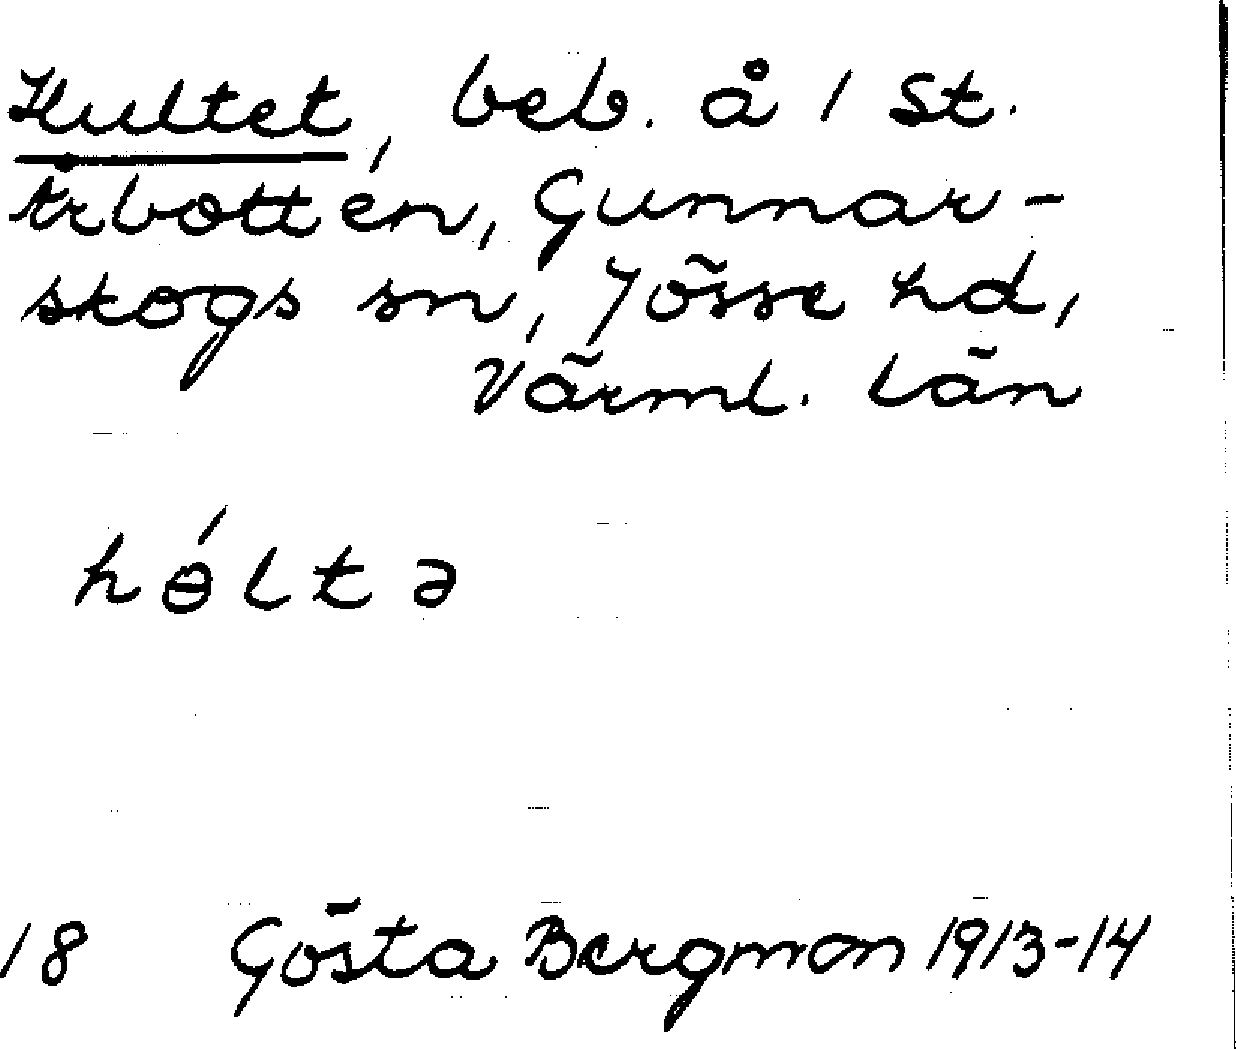 Hultet, beb. å 1 St.
Årbotten, Gunnar-
skogs sn, Jösse hd,
Värml. län
hɵ́ltə
18 Gösta Bergman 1913-14